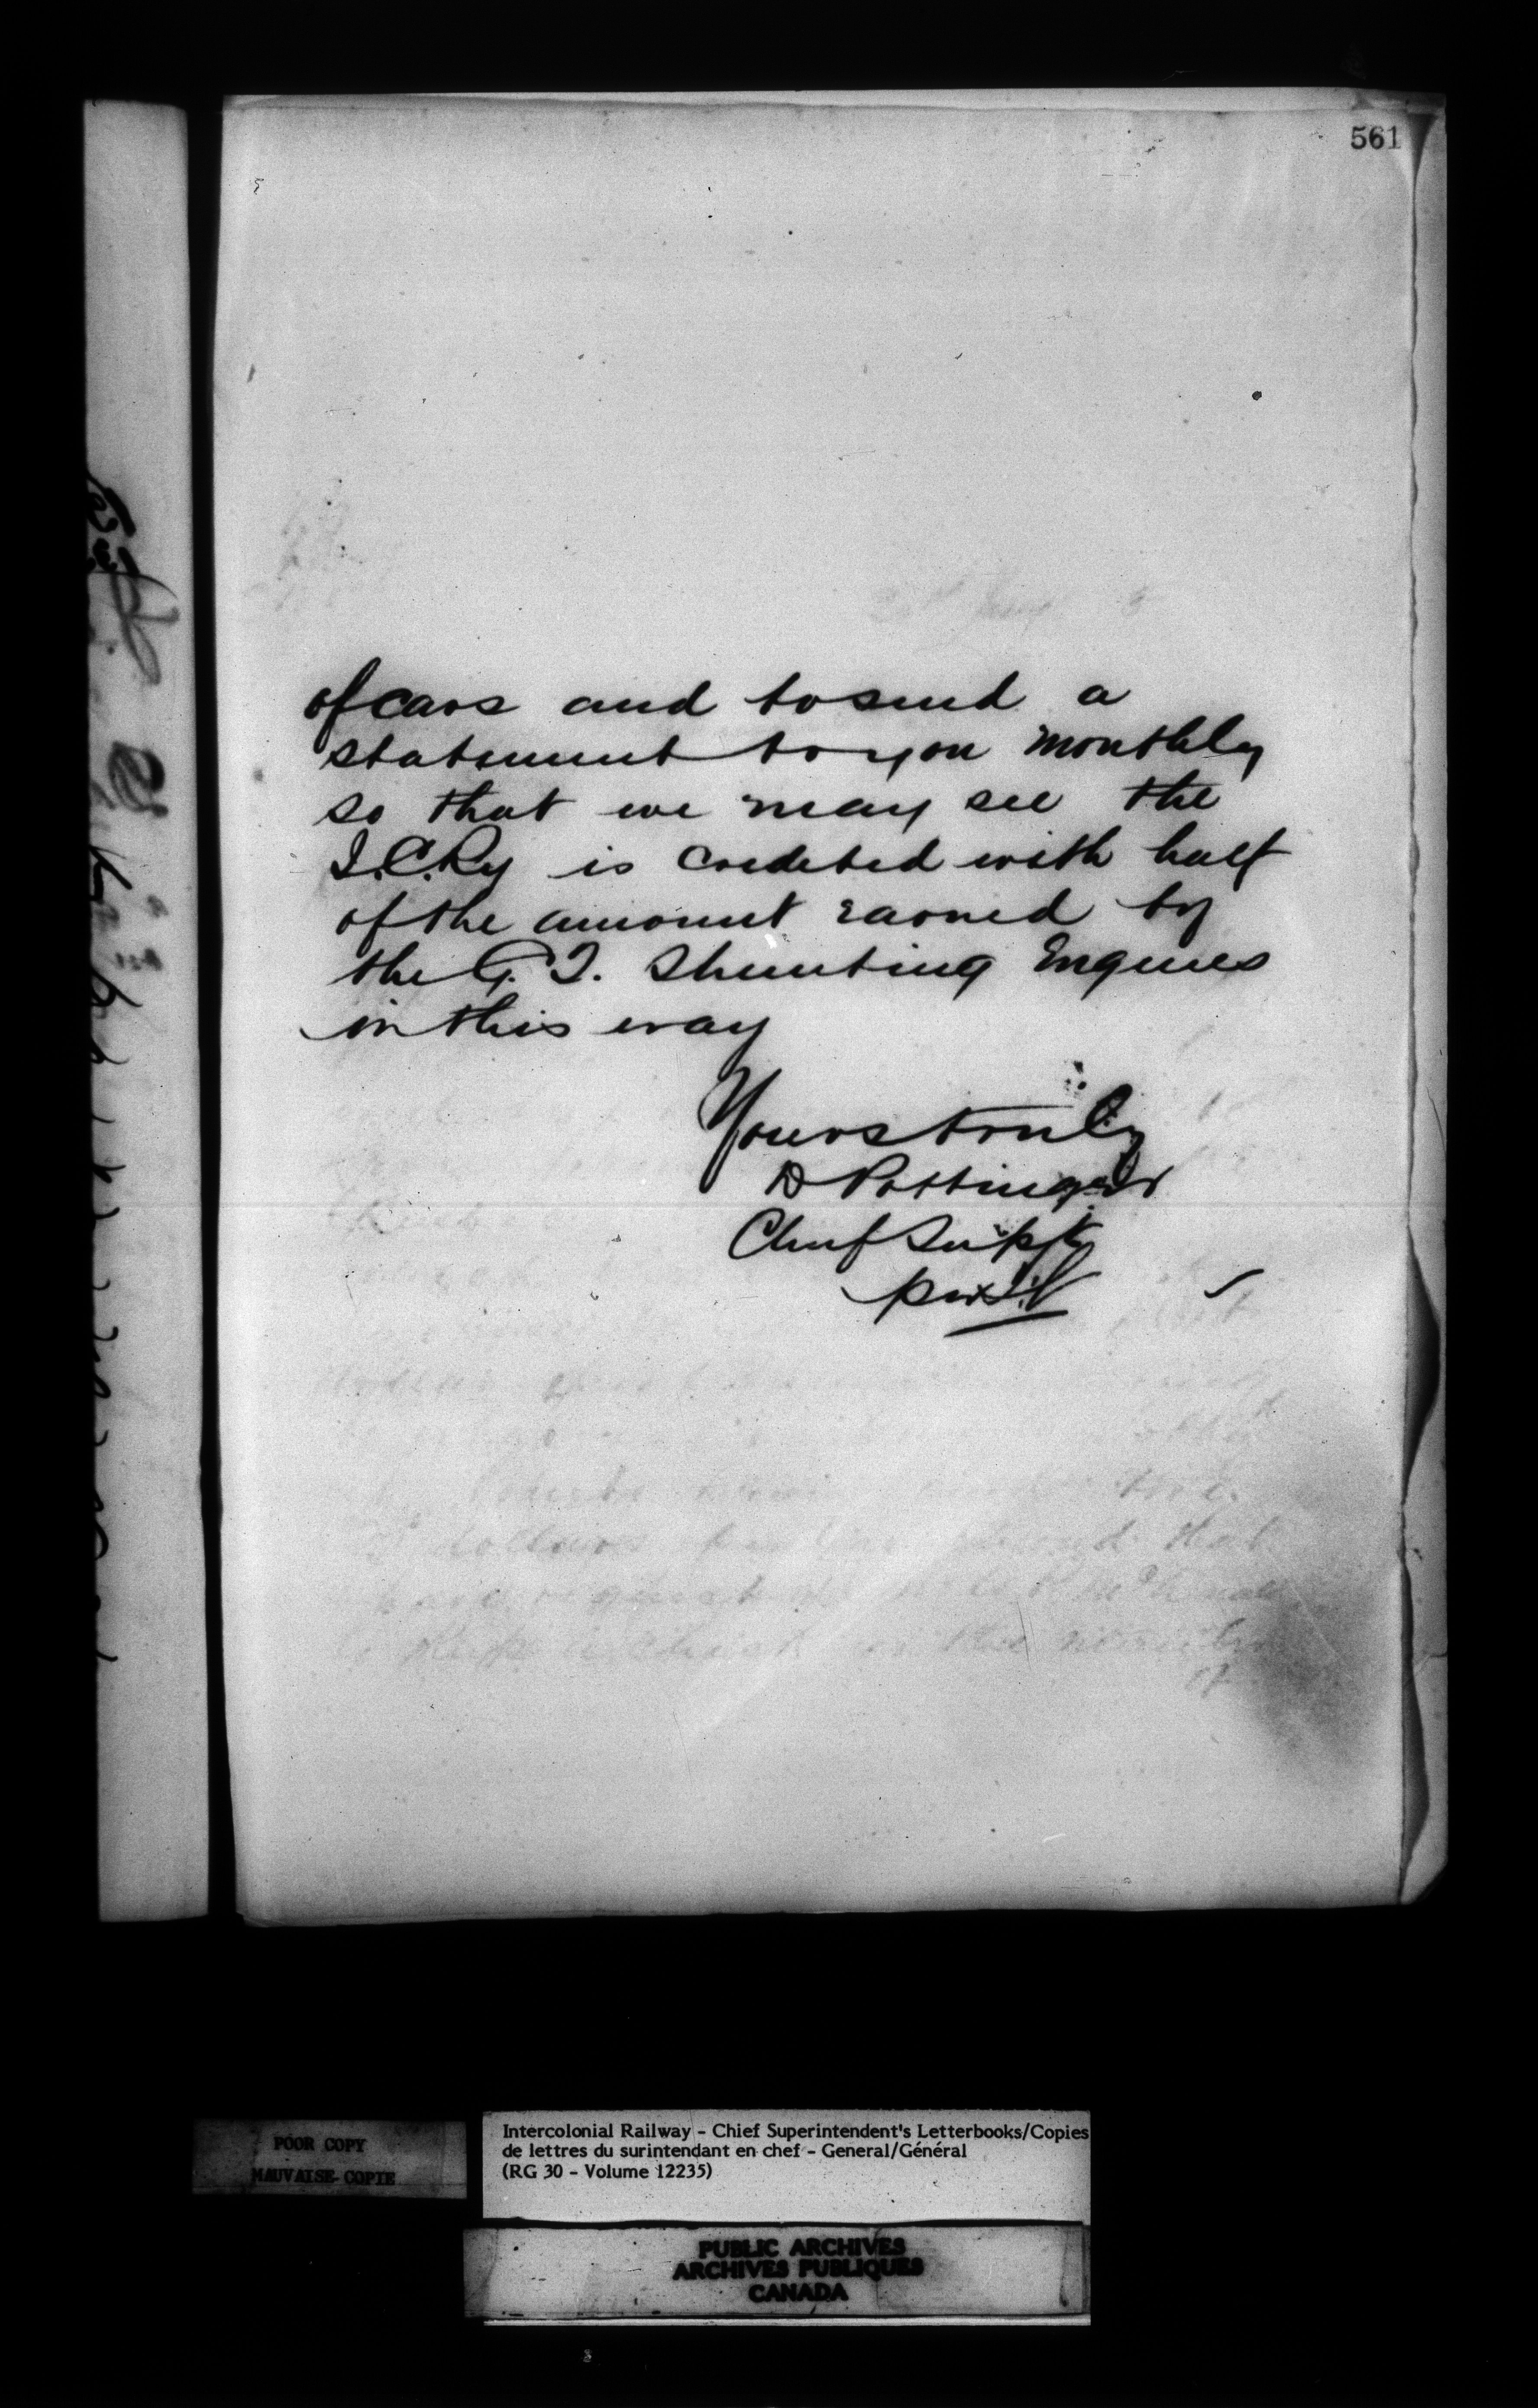 561
of cars and to send a
statement to you monthly
so that we may see the
I.C.Ry is credited with half
of the amount earned by
the G.T. Shunting Engines
in this way
Yours truly
D Pottinger
Chief Supt
POOR COPY
MAUVAISE COPIE
Intercolonial Railway - Chief Superintendent's Letterbooks/Copies
de lettres du surintendant en chef - General/Général
(RG 30 - Volume 12235)
PUBLIC ARCHIVES
ARCHIVES PUBLIQUES
CANADA